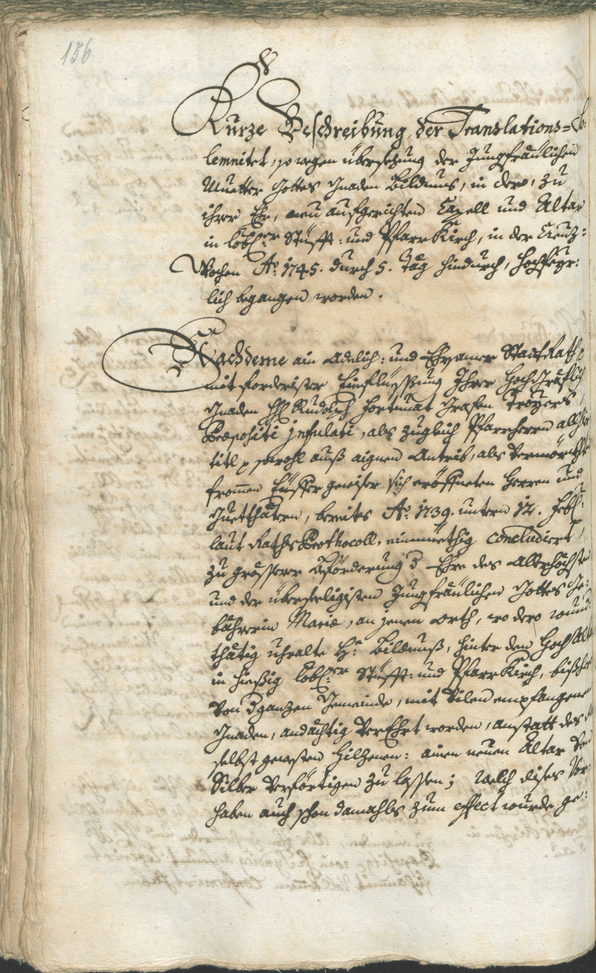 156
Kurze Beschreibung, der Translations=So
lemnitet, so wegen übersezung der Jungfräulichen
Muetter Gottes Gnaden Bildnus, in dero, zu
ihrer Ehr, neu aufgerichten Capell und Altar
in Löbl: Stüfft- und PfarrKirch, in der Creuz=
Wochen Aº: 1745. durch 5. Täg hindurch, Hochfeyr=
lich begangen worden.
Nachdeme ain Adelich: und Ehrsamer StattRath
mit forderister Einflüssung Ihrer HochGräflich
Gnaden H: Rudolph Fortunat Grafen Troyers
Præpositi infulati, als zugleich Pfarrherrn all
titl sowohl auß aignen Antrib, als
fromen Eyffer geweser sich eröffneten Herren und
Guetthätern, bereits Aº: 1739. untern 17. Febr:
laut RathsProthocoll, einmüethig concludiert
zu grösserer Beförderung d Ehre des Allerhöchsten
und der überseeligisten Jungfräulichen Gottes Ge=
bährerin Mariæ, an jenen Orth, wo dero wund
thätig uhralte H: Bildnuß, hinter den Hoch Alt
in hiesig Löbl: Stüfft- und PfarrKirch, bißher
von d ganzen Gemeinde, mit vilen empfangenen
Gnaden, andächtig verEhrt worden, anstatt des
selbst gewesten Hilzenen: ainen neuen Altar von
Silber verförtigen zu lassen; welch dises Vor
haben auch schon damahls zum effect wurde ge=